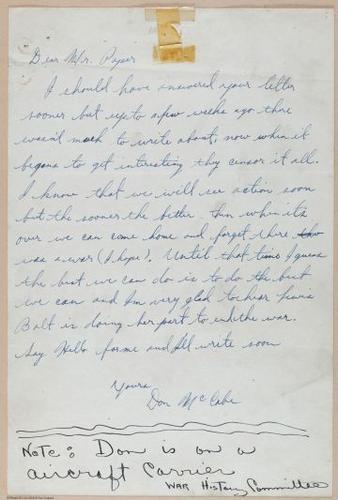 Dear Mr. Payer
I should have answered your letter
sooner but up to a few weeks ago there
wasn't much to write about, now when it
begins to get interesting they censor it all.
I know that we will see action soon
but the sooner the better. Then when its
over we can come home and forget there
was a war (I hope). Until that time I guess
the best we can do is to do the best
we can and I'm very glad to hear
Balt is doing her part to end the war.
Say Hello for me and I'll write soon
Yours
Don McCabe
Note: Don is on a
aircraft carrier
War History Committee